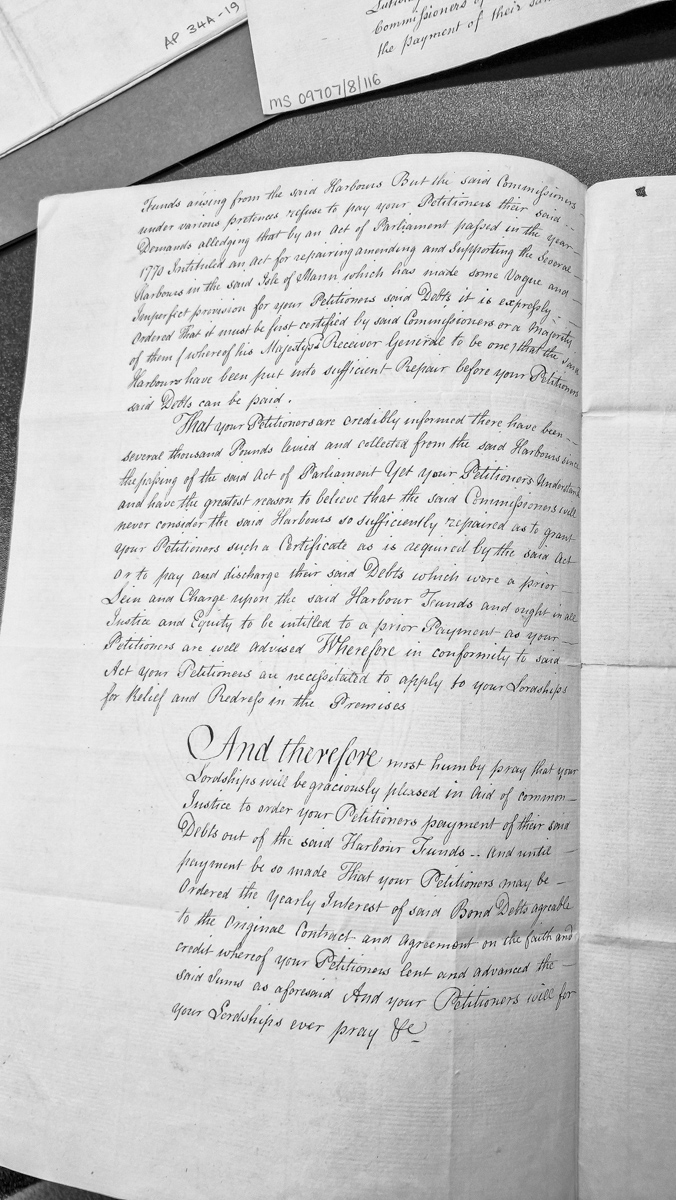 AP 34A-19
Commissioners of
the payment of their
MS 09707/8/116
Funds arising from the said Harbours But the said Commissioners
under various pretences refuse to pay your Petitioners their said --
Demands alledging that by an Act of Parliament passed in the year
1770 Intituled an Act for repairing amending and Supporting the several
Harbours in the said Isle of Mann which has made some Vague and
Imperfect provision for your Petitioners said Debts it is expressly --
Ordered That it must be first certified by said Commissioners or a Majority
of them (whereof his Majestys Receiver General to be one) that the said
Harbours have been put into sufficient Repair before your Petitioners
said Debts can be paid.
That your Petitioners are credibly informed there have been --
several thousand Pounds levied and collected from the said Harbours since
the passing of the said Act of Parliament Yet your Petitioners Understand
and have the greatest reason to believe that the said Commissioners will
never consider the said Harbours so sufficiently repaired as to grant
your Petitioners such a Certificate as is required by the said Act
or to pay and discharge their said Debts which were a prior
Lein and Charge upon the said Harbour Funds and ought in all
Justice and Equity to be intitled to a prior Payment as your
Petitioners are well advised Wherefore in conformity to said
Act your Petitioners are necessitated to apply to your Lordships
for Relief and Redress in the Premises
And therefore most humbly pray that your
Lordships will be graciously pleased in Aid of common
Justice to order your Petitioners payment of their said
Debts out of the said Harbour Funds -- and until
payment be so made That your Petitioners may be
Ordered the Yearly Interest of said Bond Debts agreable
to the Original Contract and agreement on the faith and
credit whereof your Petitioners lent and advanced the
said Sums as aforesaid And your Petitioners will for
your Lordships ever pray &c